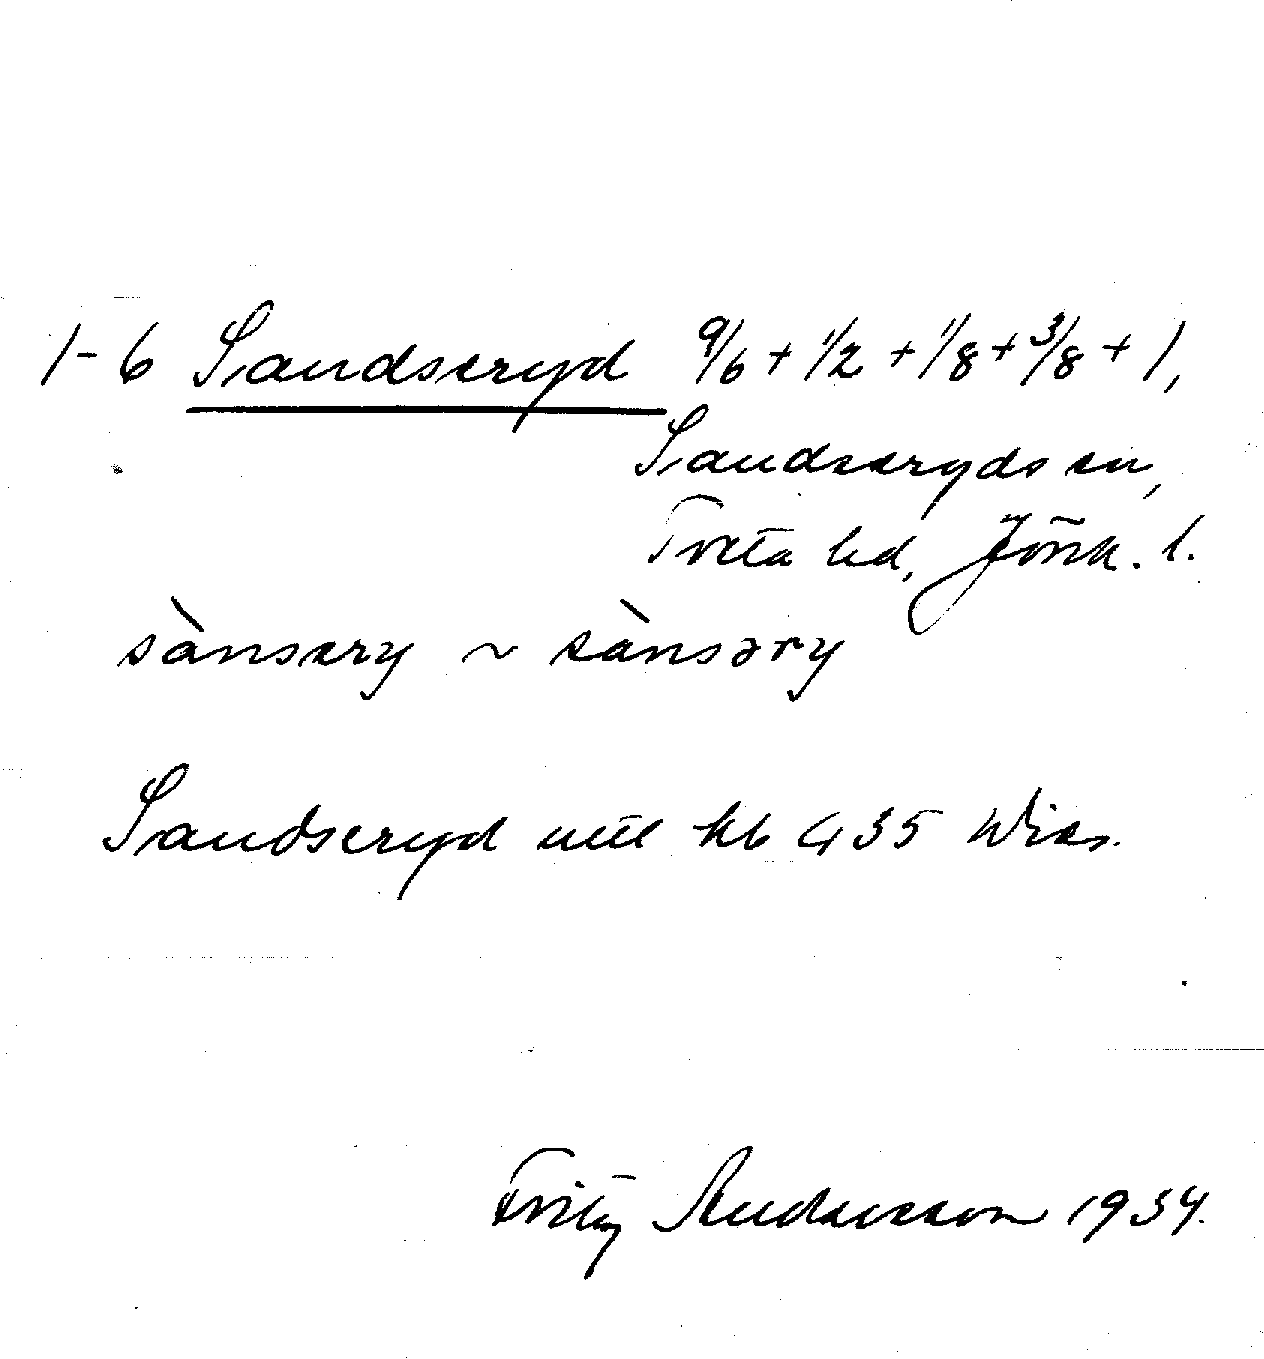 1-6 Sandseryd 9/6 + 1/2 + 1/8 + 3/8 + 1,
Sandseryds sn,
Tveta hd, Jönk. l.
sànsery ~ sànsəry
Sandseryd util kb 435 Wies.
Fritz Andersson 1934.